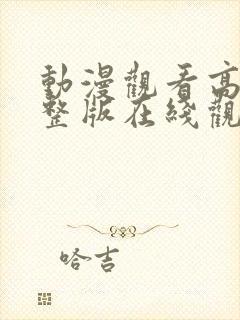 動漫觀看高
整版在綫觀
哈吉